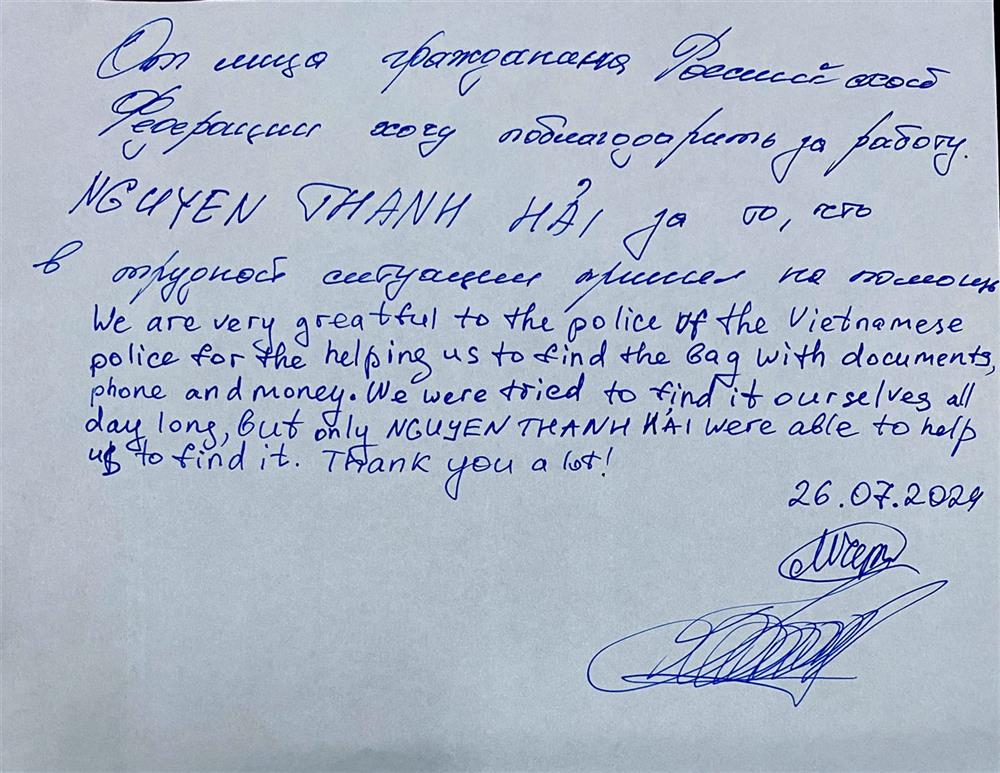 От лица гражданина Российской
Федерации хочу поблагодарить за работу.
NGUYEN THANH HẢI за то, что
в трудной ситуации пришел на помощь
We are very greatful to the police of the Vietnamese
police for the helping us to find the Bag with documents,
phone and money. We were tried to find it ourselves all
day long, But only NGUYEN THANH HẢI were able to help
us to find it. Thank you a lot!
26.07.2024